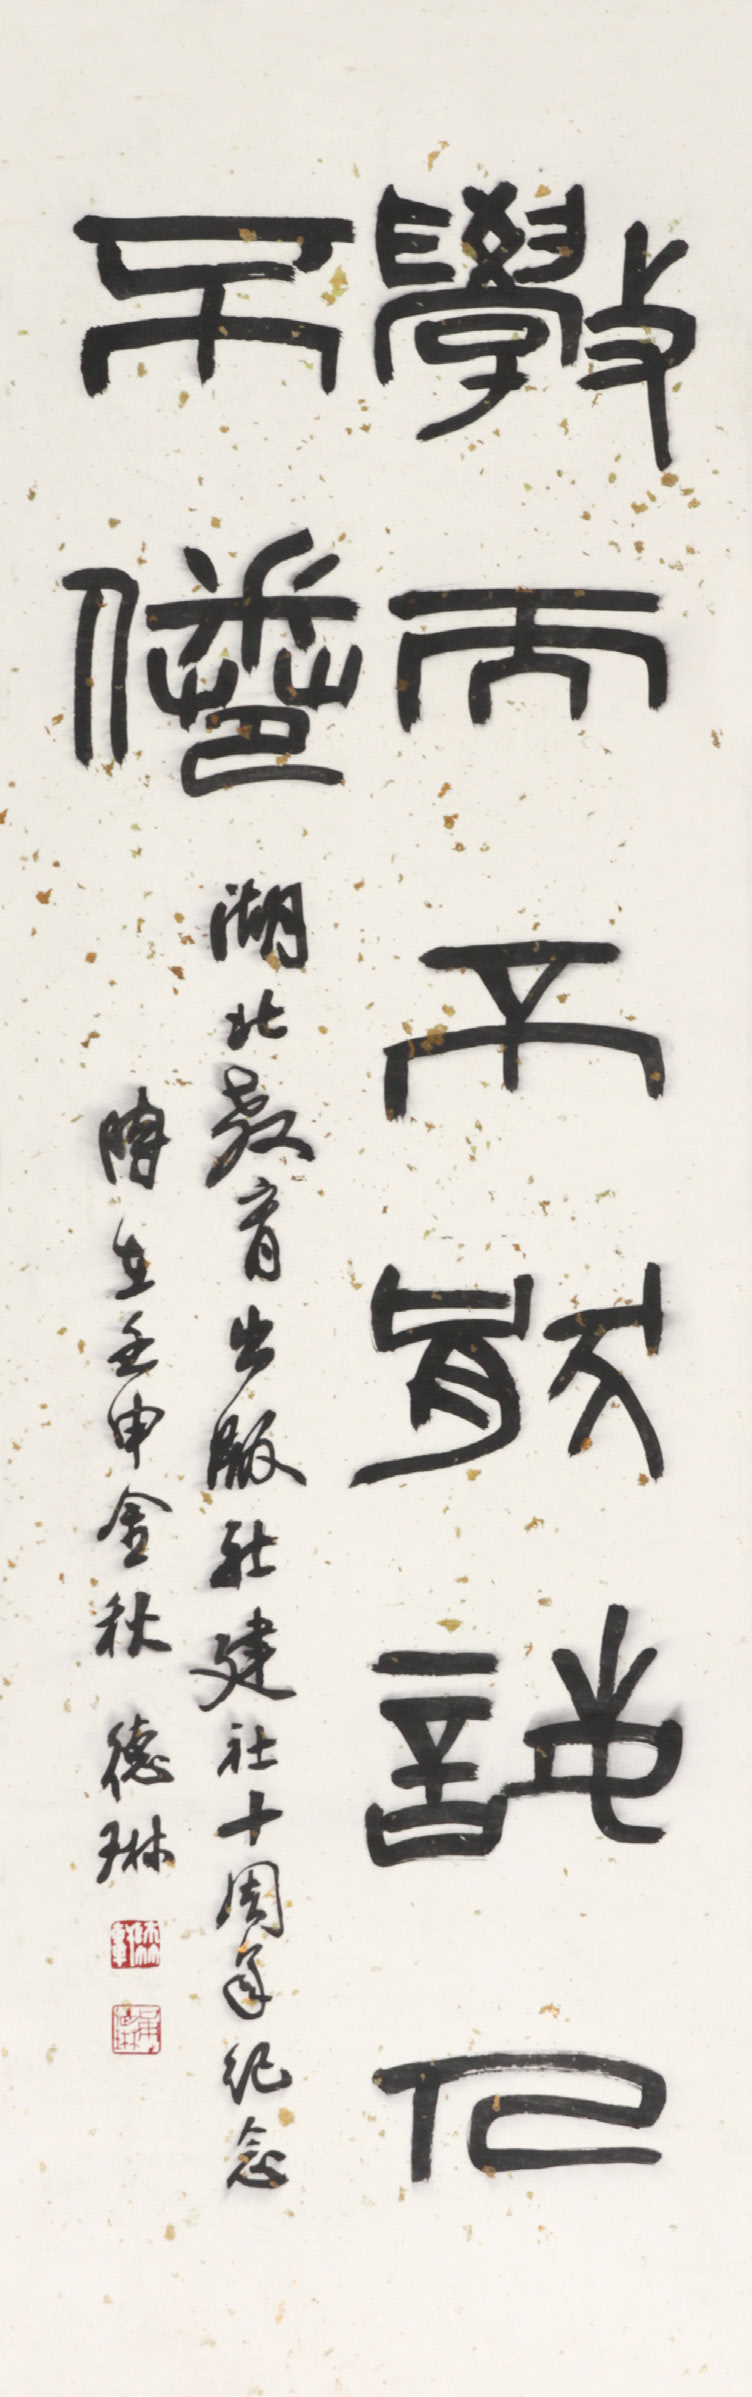 斆而不猒誨人
不倦
湖北教育出版社建社十周年纪念
時在壬申金秋 德琳